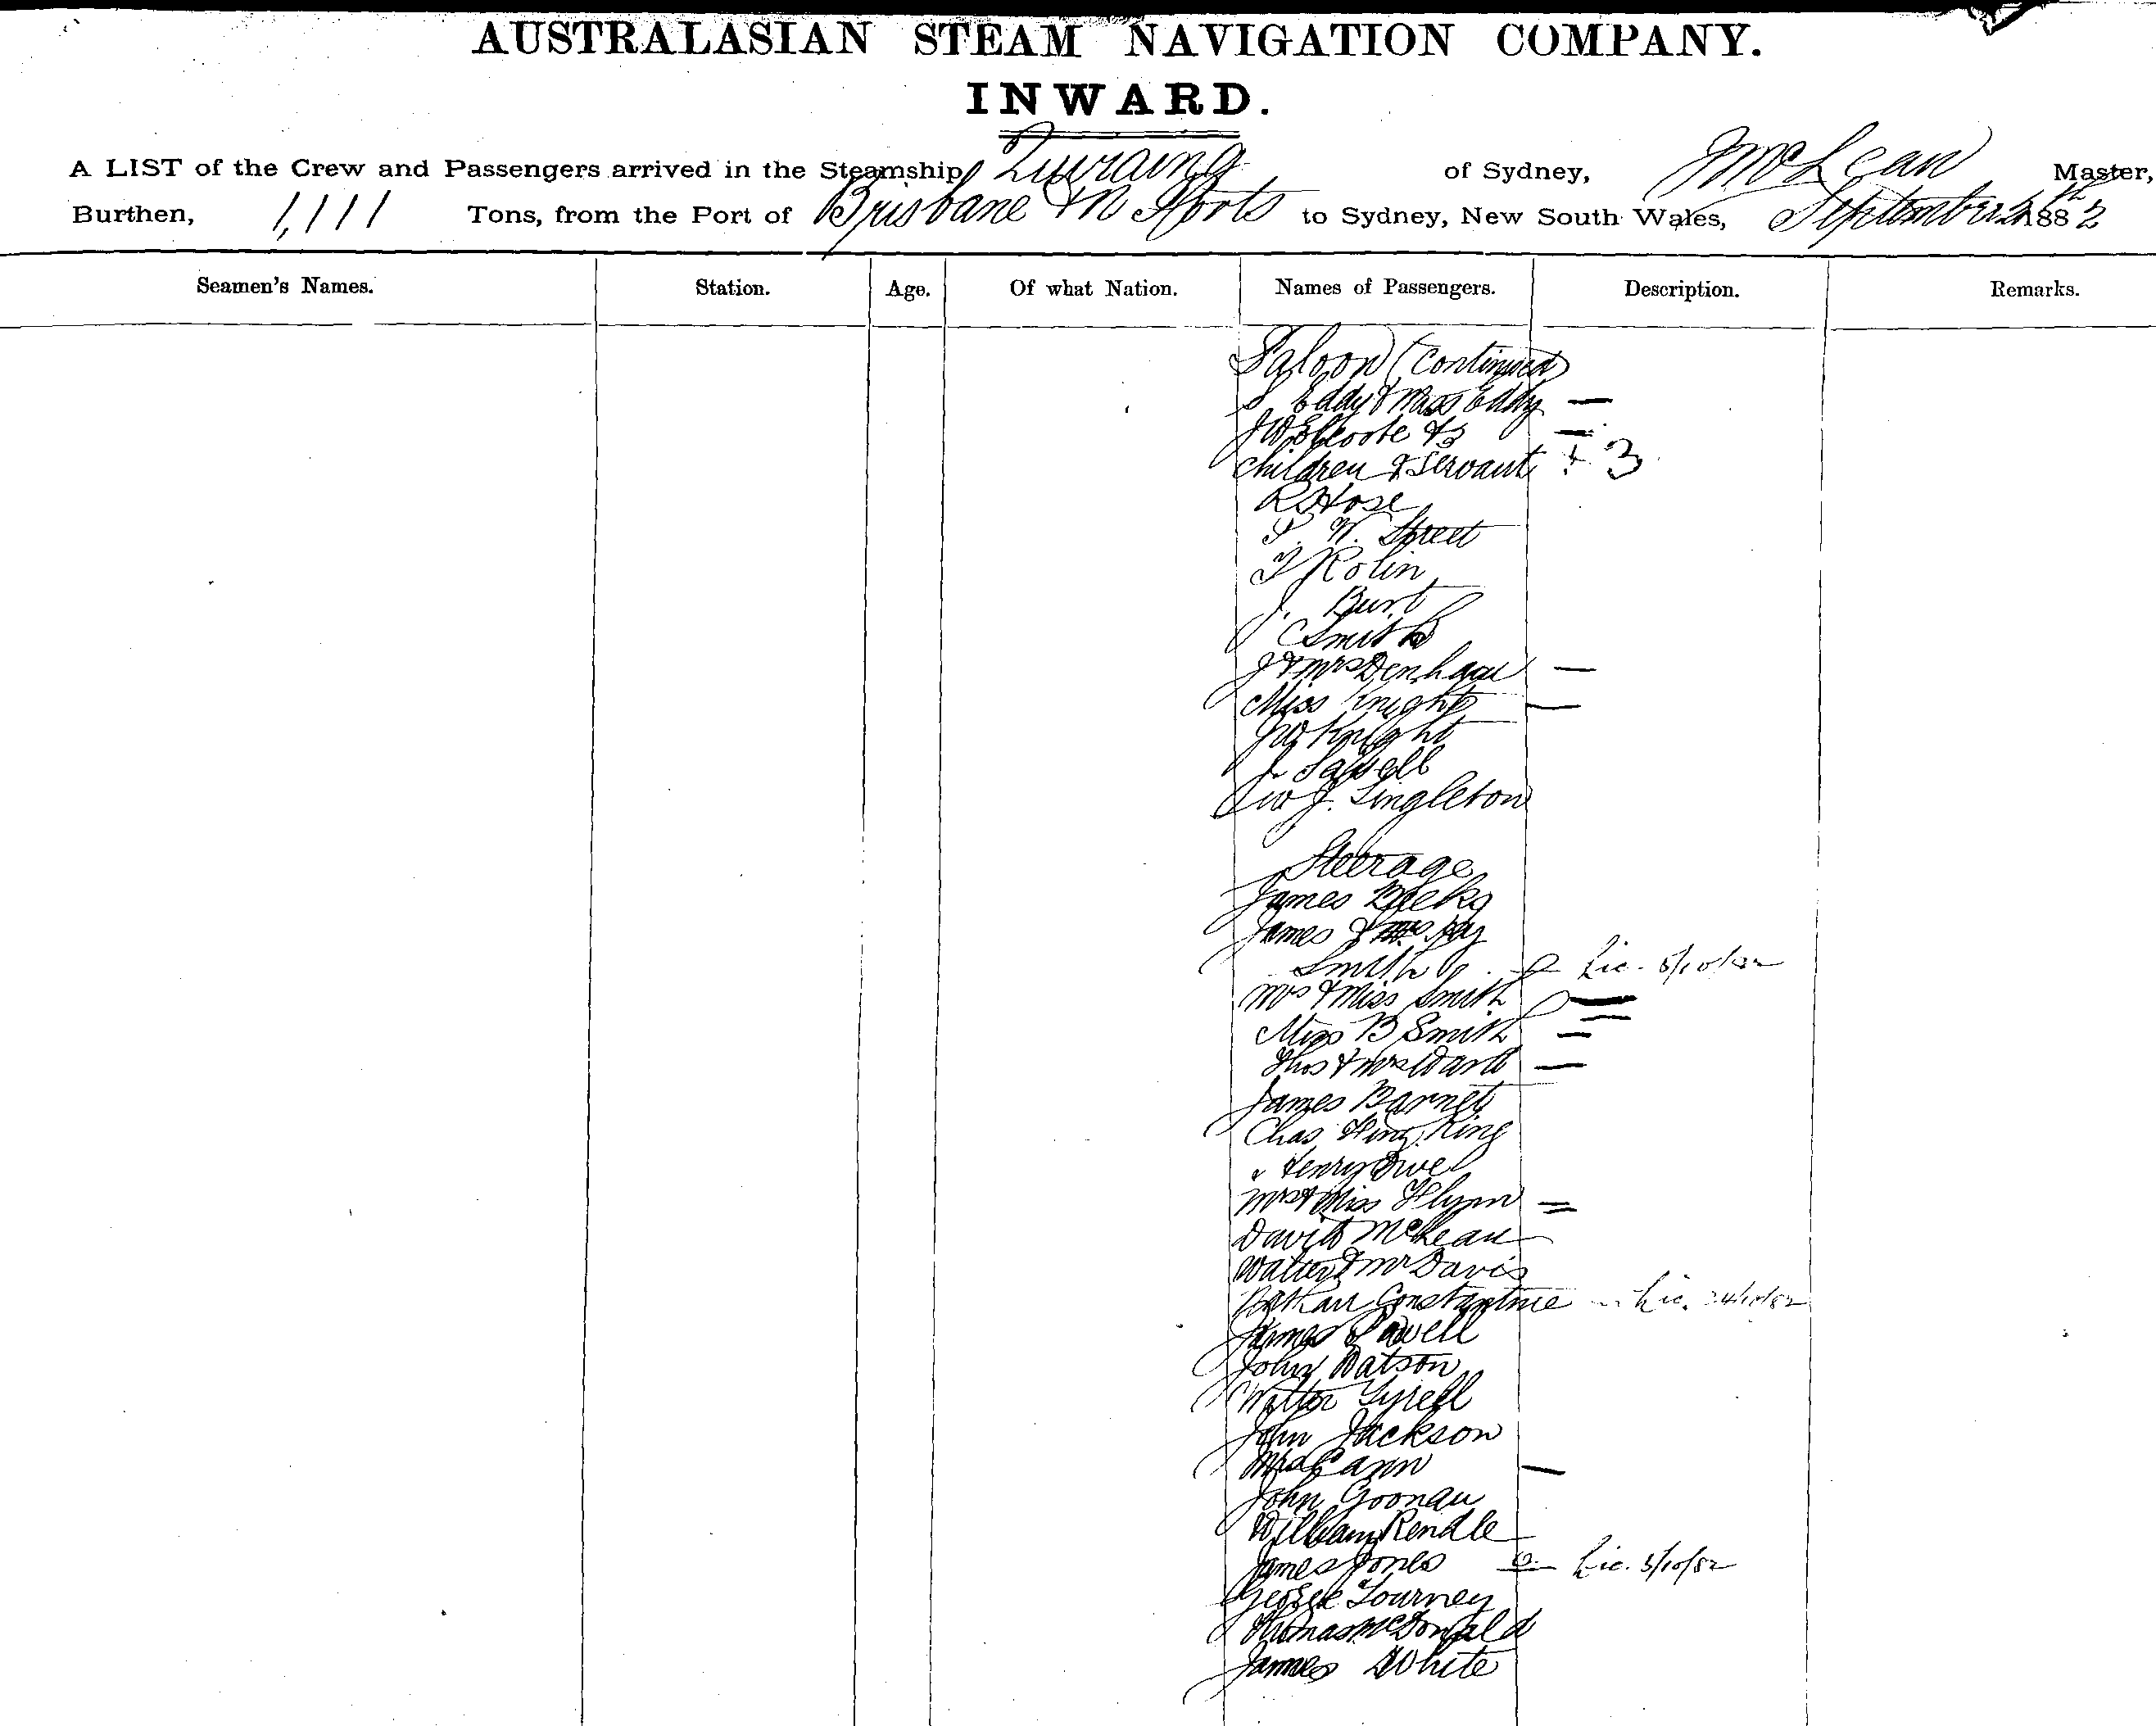 AUSTRALASIAN STEAM NAVIGATION COMPANY.
INWARD.
A LIST of the Crew and Passengers arrived in the Steamship Quiraing of Sydney, J McLean Master,
Burthen, 1,111 Tons, from the Port of Brisbane & N Ports to Sydney, New South Wales, September 1882
Seamen's Names. Station. Age. Of what Nation. Names of Passengers. Description. Remarks.
Saloon (Continued)
S Eddy & Miss Eddy —
& 3 —
Children & Servant + 3
R Hose
S. W. Street
J Rolin
J. Burt
C Smith
J & Mrs Denham —
Miss Knight —
JW Knight
J.
J. Singleton
Steerage
James
James & Mrs
Smith Lic. 5/10/82
Mrs & Miss Smith
Miss B Smith
Thos & Mrs Ward —
James Barnet
Chas Hing King
" Henry
Mrs & Miss Flynn
David McLean
Walter & Mr Davis
Nathan Constantine Lic. 24/10/82
James Powell
John Watson
Walter Tyrell
John Jackson
Mrs Cann —
John Goonan
William Rendle
James Jones Lic. 5/10/82
George Tourney
Thomas McDonald
James White